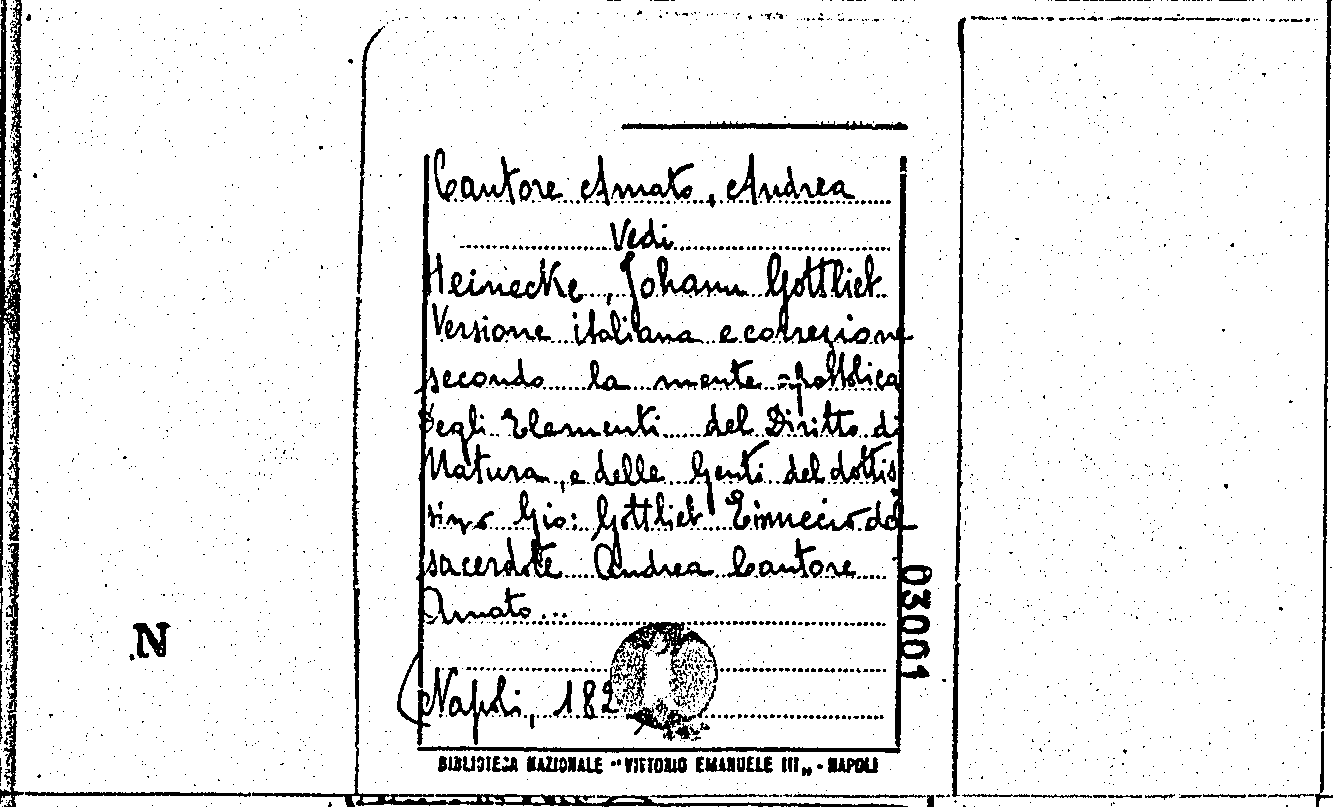 Cantore Amato, Andrea
Vedi
Heinecke, Johann Gottlieb
Versione italiana e correzione
secondo la mente cattolica
degli Elementi del Diritto di
Natura, e delle Genti del dottis
simo Gio: Gottlieb Einneccio dal
sacerdote Andrea Cantore
Amato...
(Napoli, 182
BIBLIOTECA NAZIONALE "VITTORIO EMANUELE III„ - NAPOLI
03001
N